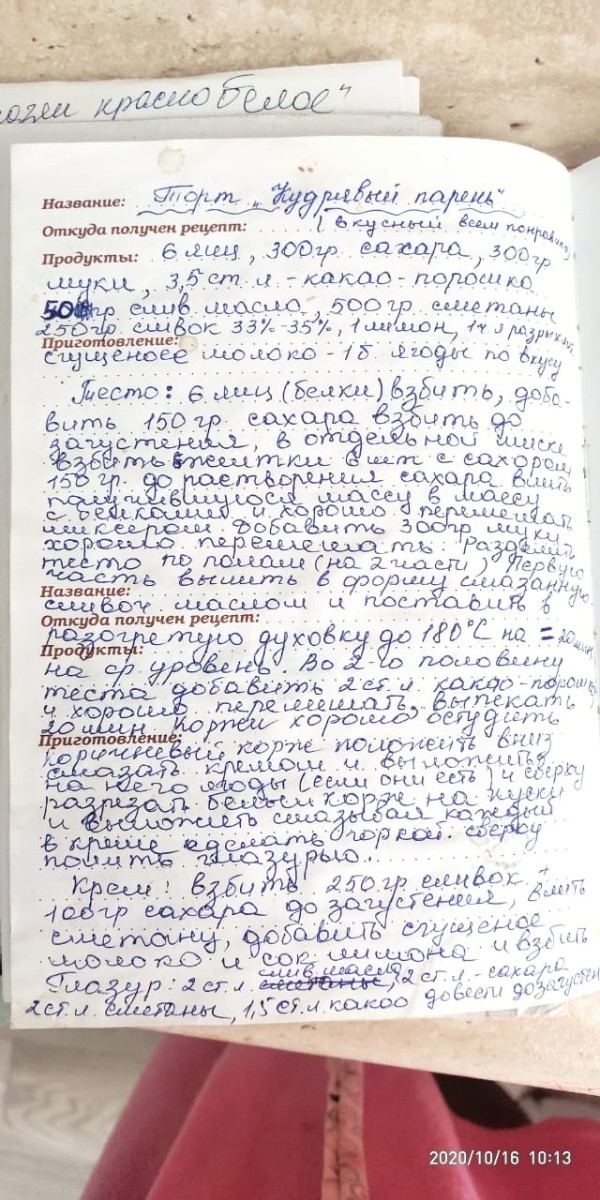 красно белое"
Название: Торт "Кудрявый парень"
Откуда получен рецепт: (вкусный всем понравился)
Продукты: 6 яиц, 300гр сахара, 300гр
муки, 3,5 ст.л - какао-порошка
50гр слив. масла, 500гр сметаны
250гр. сливок 33%-35%, 1 лимон, 1ч л разрыхл.
Приготовление:
сгущеное молоко - 1б. ягоды по вкусу
Тесто: 6 яиц (белки) взбить, доба-
вить 150 гр. сахара взбить до
загустения, в отдельной миске
взбить желтки 6 шт с сахором
150 гр. до растворения сахара влить
получившуюся массу в массу
с белками и хорошо перемешать
миксером. Добавить 300гр муки
хорошо перемешать. Разделить
тесто по полам (на 2 части) Первую
часть вылить в форму смазанную
Название:
сливоч. маслом и поставить в
Откуда получен рецепт:
разогретую духовку до 180°С на = 20 мин
Продукты:
на ср. уровень. Во 2-ю половину
теста добавить 2 ст. л. какао-порошка
и хорошо перемешать, выпекать
20 мин. Коржи хорошо остудить
Приготовление:
Коричневый корж положить вниз
смазать кремом и выложить
на него ягоды (если они есть) и сверху
разрезать белый корж на куски
и выложить смазывая каждый
в креме сделать горкой. сверху
полить глазурью.
Крем: взбить 250 гр. сливок +
100гр сахара до загустения, влить
сметану, добавить сгущеное
молоко и сок лимона и взбить
слив масла
Глазур: 2 ст. л. сметаны, 2 ст. л. - сахара
2 ст. л. сметаны, 1,5 ст. л. какао довести до загустен
2020/10/16 10:13